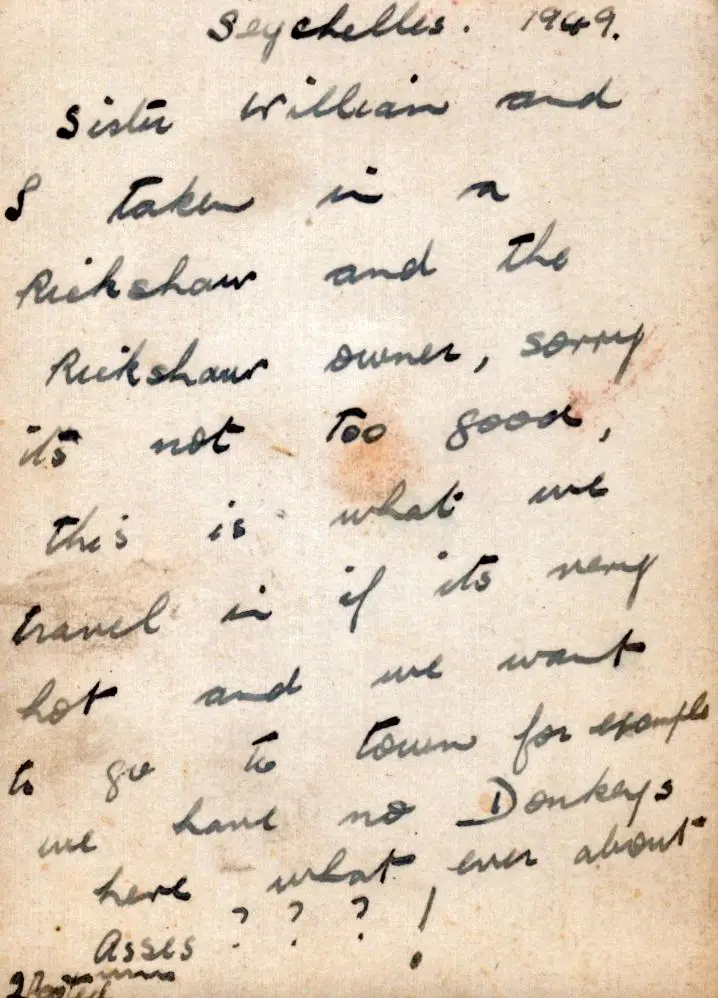 Seychelles. 1949.
Sister William and
I taken in a
Rickshaw and the
Rickshaw owner, sorry
its not too good,
this is what we
travel in if its very
hot and we want
to go to town for example
we have no Donkeys
here what ever about
Asses ? ? ? !